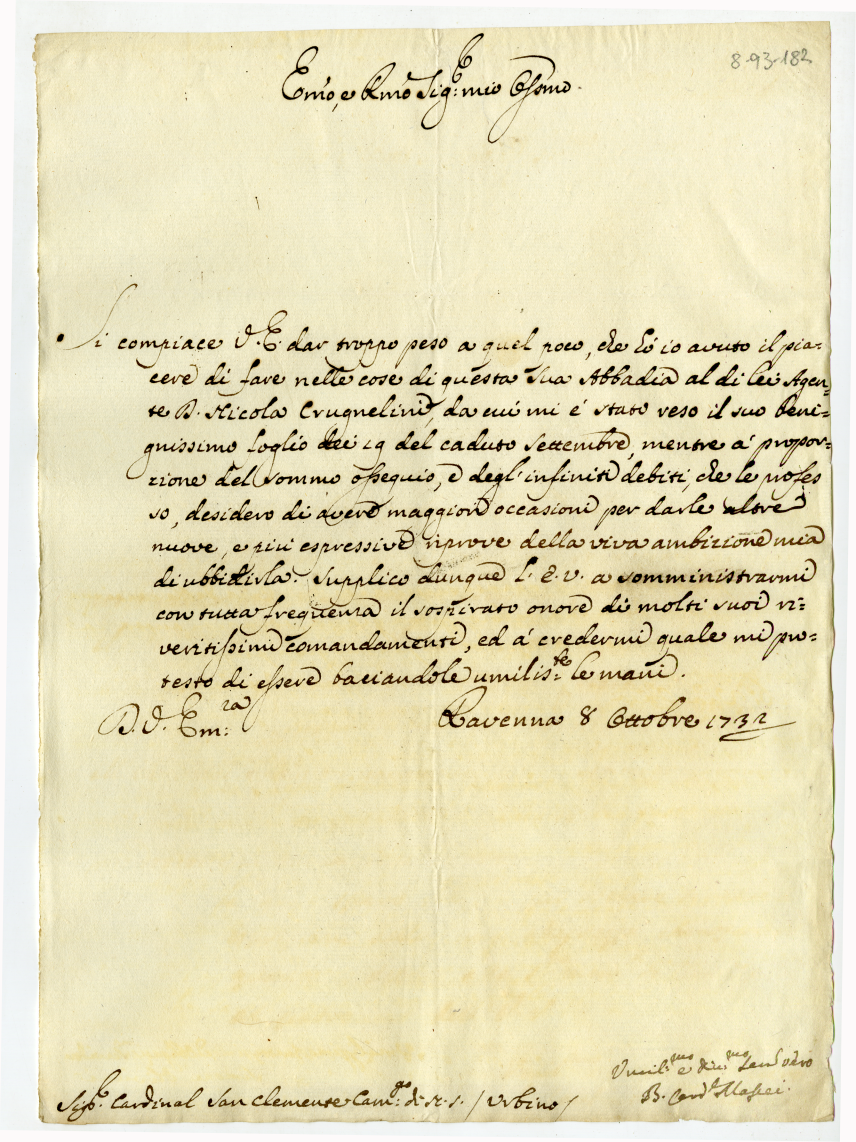 8-93-182
Em̃o, e Rm̃o Sig:re mio Oss̃mo.
Si compiace V. E. dar troppo peso a quel poco, che hò io avuto il pia=
cere di fare nelle cose di questa Sua Abbadia al di lei Agen=
te D. Nicola Crugnelini, da cui mi é stato reso il suo beni=
gnissimo foglio dei 29 del caduto Settembre, mentre á propor=
zione del sommo ossequio, e degl'infiniti debiti, che le profes
so, desidero di avere maggiori occasioni per darle altre
nuove, e più espressive riprove della viva ambizione mia
di ubbidirla. Supplico dunque l'E. V. a somministrarmi
con tutta frequenza il sospirato onore di molti suoi ri=
veritissimi comandamenti, ed á credermi quale mi pro=
testo di essere baciandole umilis:te le mani.
D. V. Em:za Ravenna 8 Ottobre 1732
Umil:mo e :mo Ser.e vero
B. Card.l Massei.
Sig.r Cardinal San Clemente Cam:go di S. S. / Urbino /